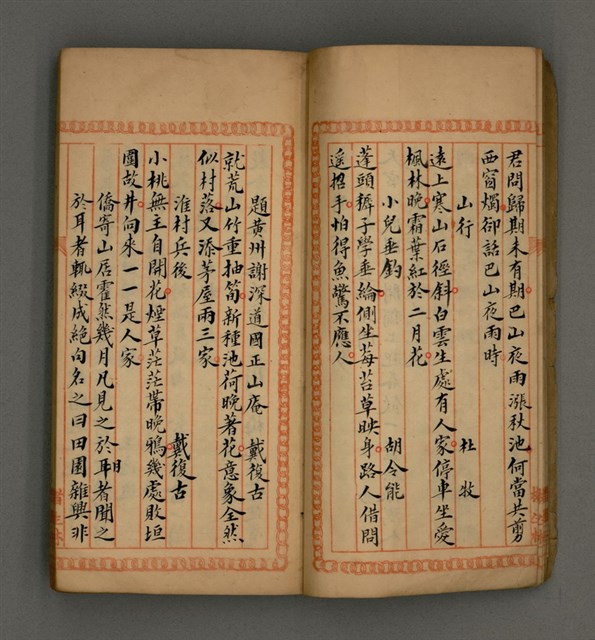 君問歸期未有期巴山夜雨漲秋池何當共剪
西窗燭卻話巴山夜雨時
山行　杜牧
遠上寒山石徑斜白雲生處有人家停車坐愛
楓林晚霜葉紅於二月花
小兒垂釣　胡令能
蓬頭穉子學垂綸側坐莓苔草映身路人借問
遥招手怕得魚驚不應人
題黃州謝深道國正山庵　戴復古
就荒山竹重抽筍新種池荷晚著花意象全然
似村落又添茅屋兩三家
淮村兵後　戴復古
小桃無主自開花煙草茫茫帶晚鴉幾處敗垣
圍故井向來一一是人家
僑寄山居霍然幾月凡見之於目耳者聞之
於耳者輒綴成絕句名之曰田園雜興非